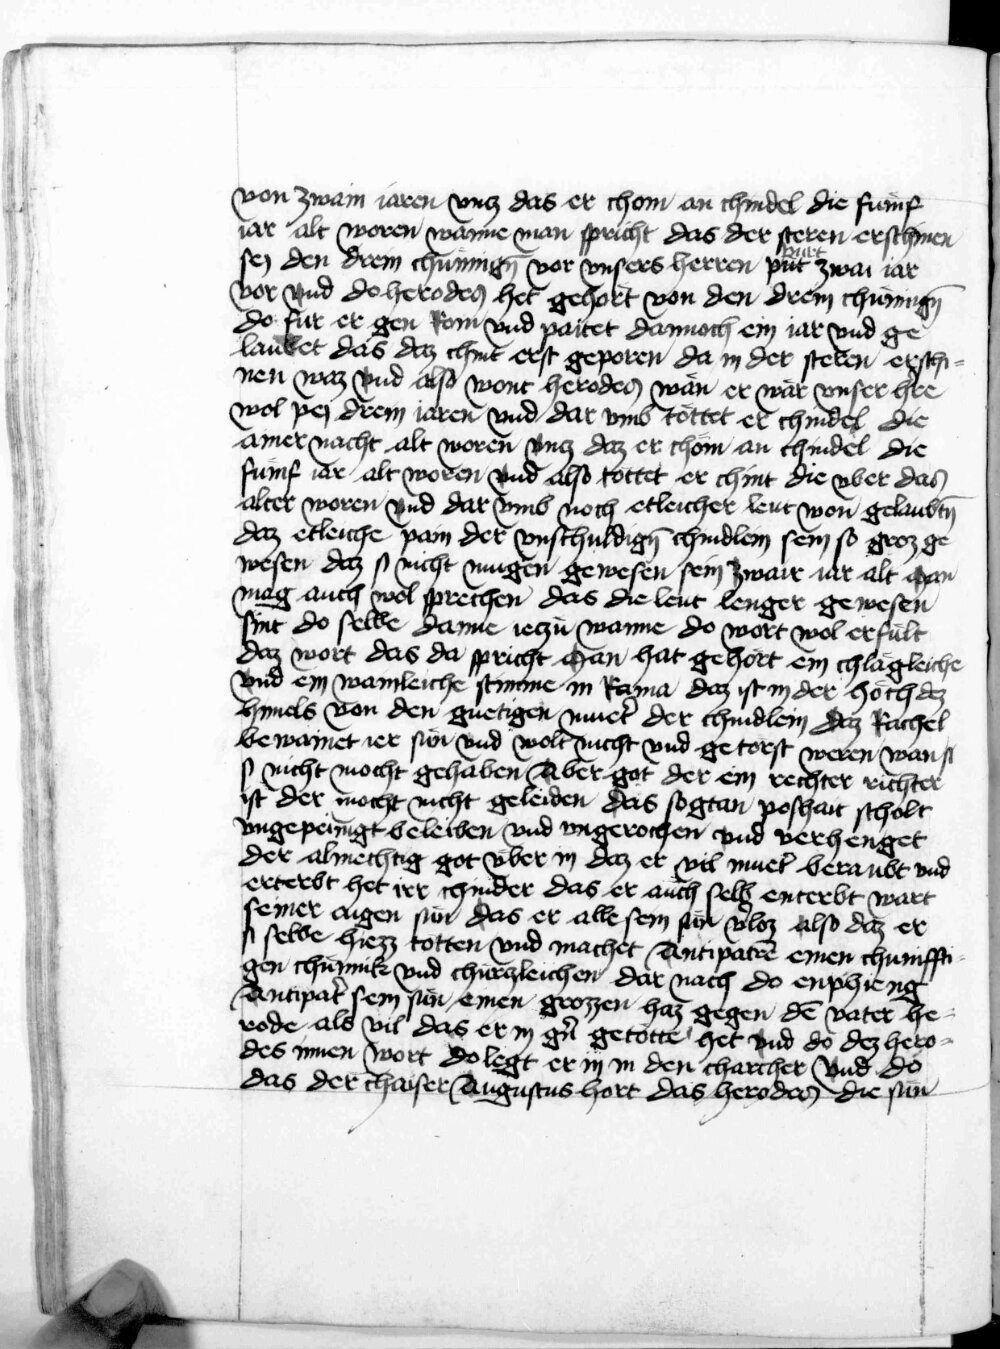 von zwain iaren vncz das er chom an chindel die fuinf
iar alt woren wanne man spricht das der steren erschinen
sej den drein chunnign̄ vor vnsers herren purt zwai iar
vor vnd do herodes het gehort von den drein chunnign̄
do fur er gen Rom vnd paitet dannoch ein iar vnd ge
laubet das daz chint erst geporen da in der steren erschi-
nen waz vnd also wont herodes wan er wär vnser hre
wol pej drein iaren vnd dar vmb tottet er chindel die
ainer nacht alt woren vncz daz er chom an chindel die
fuinf iar alt woren vnd also tottet er chint die vber das
alter woren vnd dar vmb noch etleicher leut won gelaubtn̄
daz etleiche pain der vnschuldign̄ chindlein sein so groz ge
wesen daz si nicht mugen gewesen sein zwair iar alt Man
mag auch wol sprechen das die leut lenger gewesen
sint do selbe danne ieczu wanne do wort wol erfult
daz wort das da spricht Man hat gehort ein chlagleiche
vnd ein wainleiche stimme in Rama daz ist in der höch dez
himels von den guetigen muet̄ der chindlein daz Rachel
bewainet ier sun vnd wolt nicht vnd getorst weren wan si
si nicht mocht gehaben Aber got der ein rechter richter
ist der mocht nicht geleiden das sogtan poshait scholt
vngepeinigt beleiben vnd vngerochen vnd verhenget
der almechtig got vber in daz er vil muet̄ beraubt vnd
erterbt het irr chinder das er auch selb enterbt wart
seiner aigen sun das er alle sein sun vloz also daz er
si selbe hiezz totten vnd machet Antipatrē einen chuniffti-
gen chunnik vnd churczleichen dar nach do enphieng
Antipat̄ sein sun einen grozzen haz gegen dē vater he-
rode als vil das er in gn̄ getotte het vnd do dez hero-
des innen wort do legt er in in den charcher vnd do
das der chaiser Augustus hort das herodes die sun